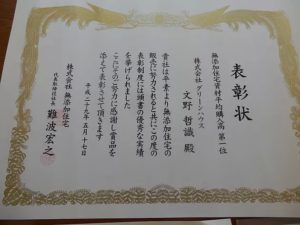 表彰状
無添加住宅資材平均購入高 第一位
株式会社 グリーンハウス
文野 哲識 殿
貴社は平素より無添加住宅の
販売に努力されると共にこの度の
表彰制度には頭書の優秀な実績
を挙げられました
ここにそのご努力に感謝し賞品を
添えて表彰させて頂きます
平成二十五年五月十七日
株式会社 無添加住宅
代表取締役社長 難波宏之